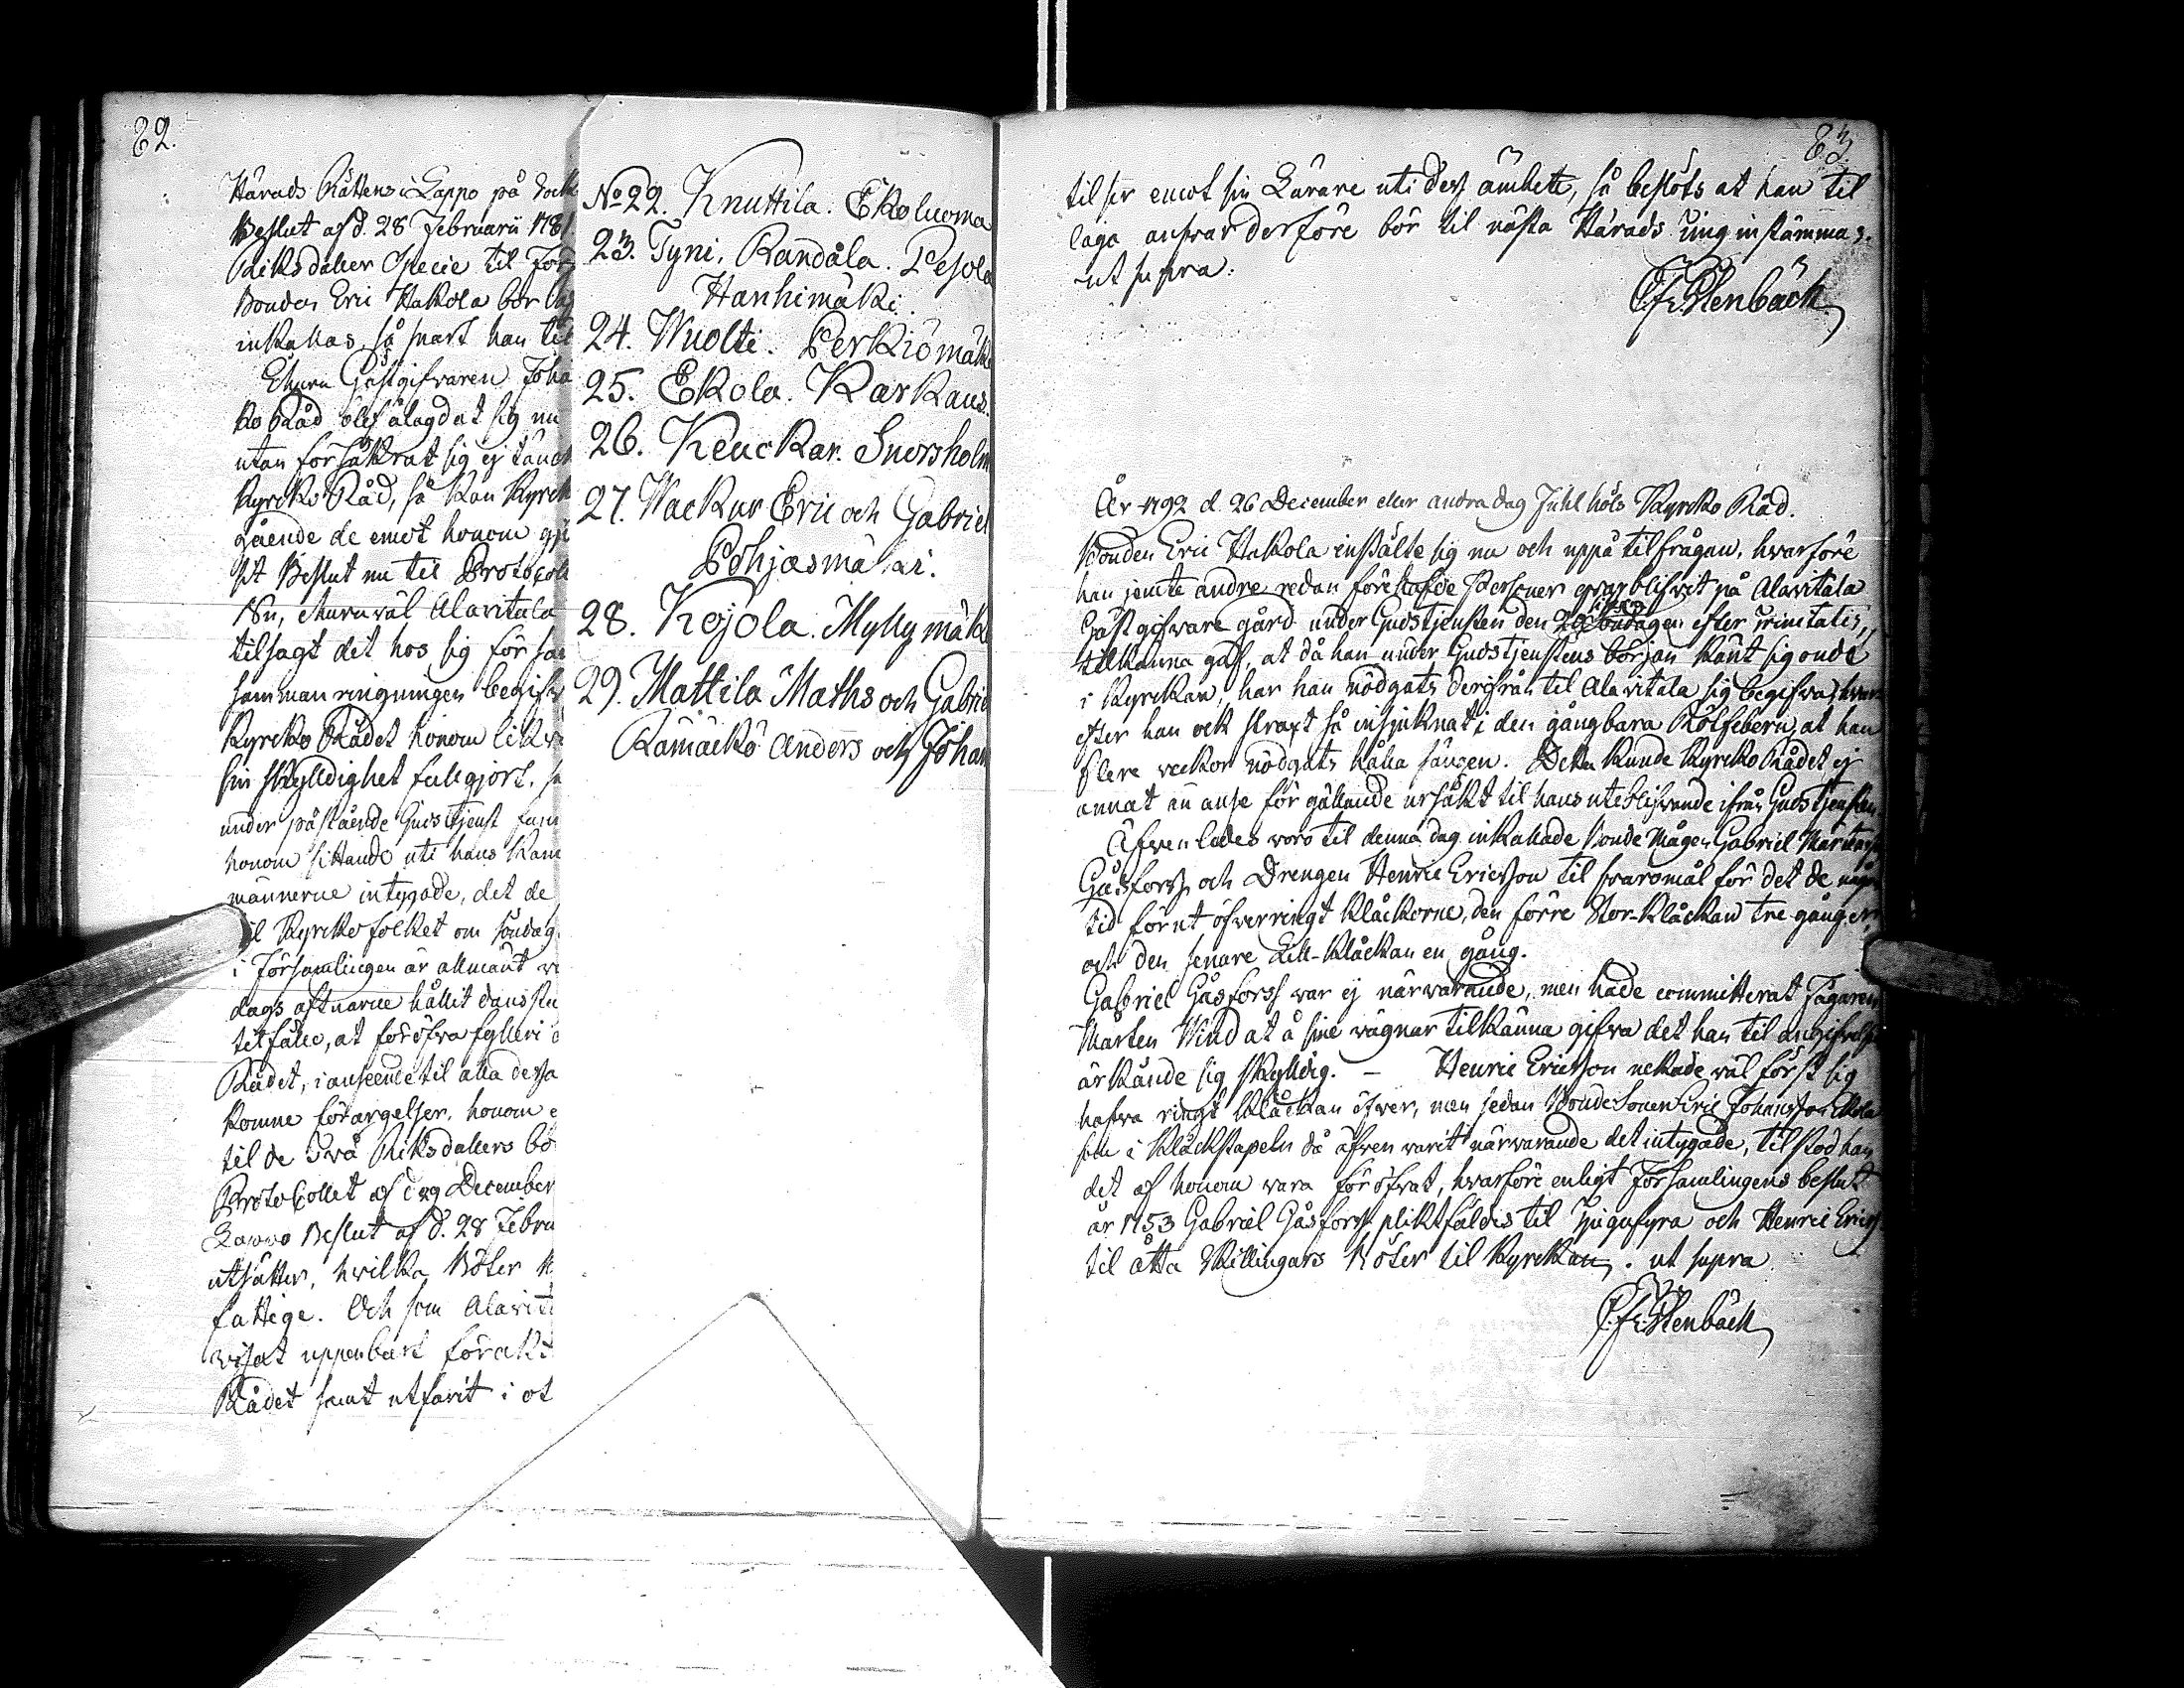 82.
Härads Rättens i Lappo på dock
Beslut af d. 28 Februarii 1781.
Riksdaler Specie til För
Bonden Eric Hakola bör
inkallas, så snart han til
Ehuru Gästgifvaren Joha
ko Råd blef ålagdt at sig nu
utan försäkrat sig ej
Kyrcko Råd, så kan Kyrck
gående de emot honom
sit Beslut nu til Protocoll
Nu, ehuruväl Alavitala
tilsagt det hos sig för
sammanringningen begifv
Kyrcko Rådet honom likv
sin skylldighet fullgjort,
under påstående Gudstjenst
honom sittande uti hans Kam
männerne intygade, det de
til Kyrckofolket om söndag
i Församlingen är allmänt
dags aftnarne hållit dansstu
tilfälle, at föröfva fylleri
Rådet, i anseende til alla dessa
komne förargelser, honom
til de Två Riksdalers bö
Protocollet af d 29 December
Lappo Beslut af d. 28 Febru
utsätter, hvilka Böter
fattige. Och som Alavit
visat uppenbart förakt
Rådet samt utfarit i ot
No 22. Knuttila. Ekoluoma
23. Tyni, Randåla. Pesola
Hanhimäki.
24. Wuolti. Perkiömäki
25. Ekola. Karkaus.
26. Keuckar. Snorsholm
27. Wackur Eric och Gabriel
Pohjasmäki.
28. Kojola. Myllymäki
29. Mattila Maths och Gabriel
Rämäckö Anders och Johan
83.
til sir emot sin Lärare uti dess ämbete, så beslöts at han til
laga ansvar derföre bör til nästa Härads Ting instämmas.
ut supra.
Stenbäck
År 1792 d. 26 December eller andra dag Juhl höls Kyrcko Råd.
Bonden Eric Hakola instälte sig nu och uppå tilfrågan, hvarföre
han jemte andre redan förehafde Personer qvarblifvit på Alavitala
Gästgifvare gård under Gudstjensten den 20 Söndagen efter Trinitatis,
tilkänna gaf, at då han under Gudstjenstens början känt sig ondt
i Kyrckan, har han nödgats derifrån til Alavitala sig begifva, hvar
efter han ock straxt så insjuknat i den gångbara Rötfebern, at han
flere veckor nödgats hålla sängen. Detta kunde Kyrcko Rådet ej
annat än anse för gällande ursäkt til hans uteblifvande ifrån Gudstjensten.
Äfvenledes voro til denna dag inkallade Bonde Mågen Gabriel Mårtens
Gåsforss och Drengen Henric Ericsson til svaromål för det de någon
tid förut öfverringt klåckorne, den förre Stor-klåckan tre gånger,
och den senare Lill-klåckan en gång.
Gabriel Gåsforss var ej närvarande, men hade committerat Jägaren
Mårten Wind at å sine vägnar tilkänna gifva det han til angifvelse
ärkände sig skylldig. - Henric Ericsson nekade väl först sig
hafva ringt klåckan öfver, men sedan Bonde Sonen Eric Johansson
som i klåckstapeln då äfven varit närvarande det intygade, tilstod han
det af honom vara föröfvat, hvarföre enligt Församlingens beslut
år 1753 Gabriel Gåsforss pliktfäldes til Tjugufyra och Henric Ericss
til åtta Skillingars Böter til Kyrckan. ut supra.
Stenbäck